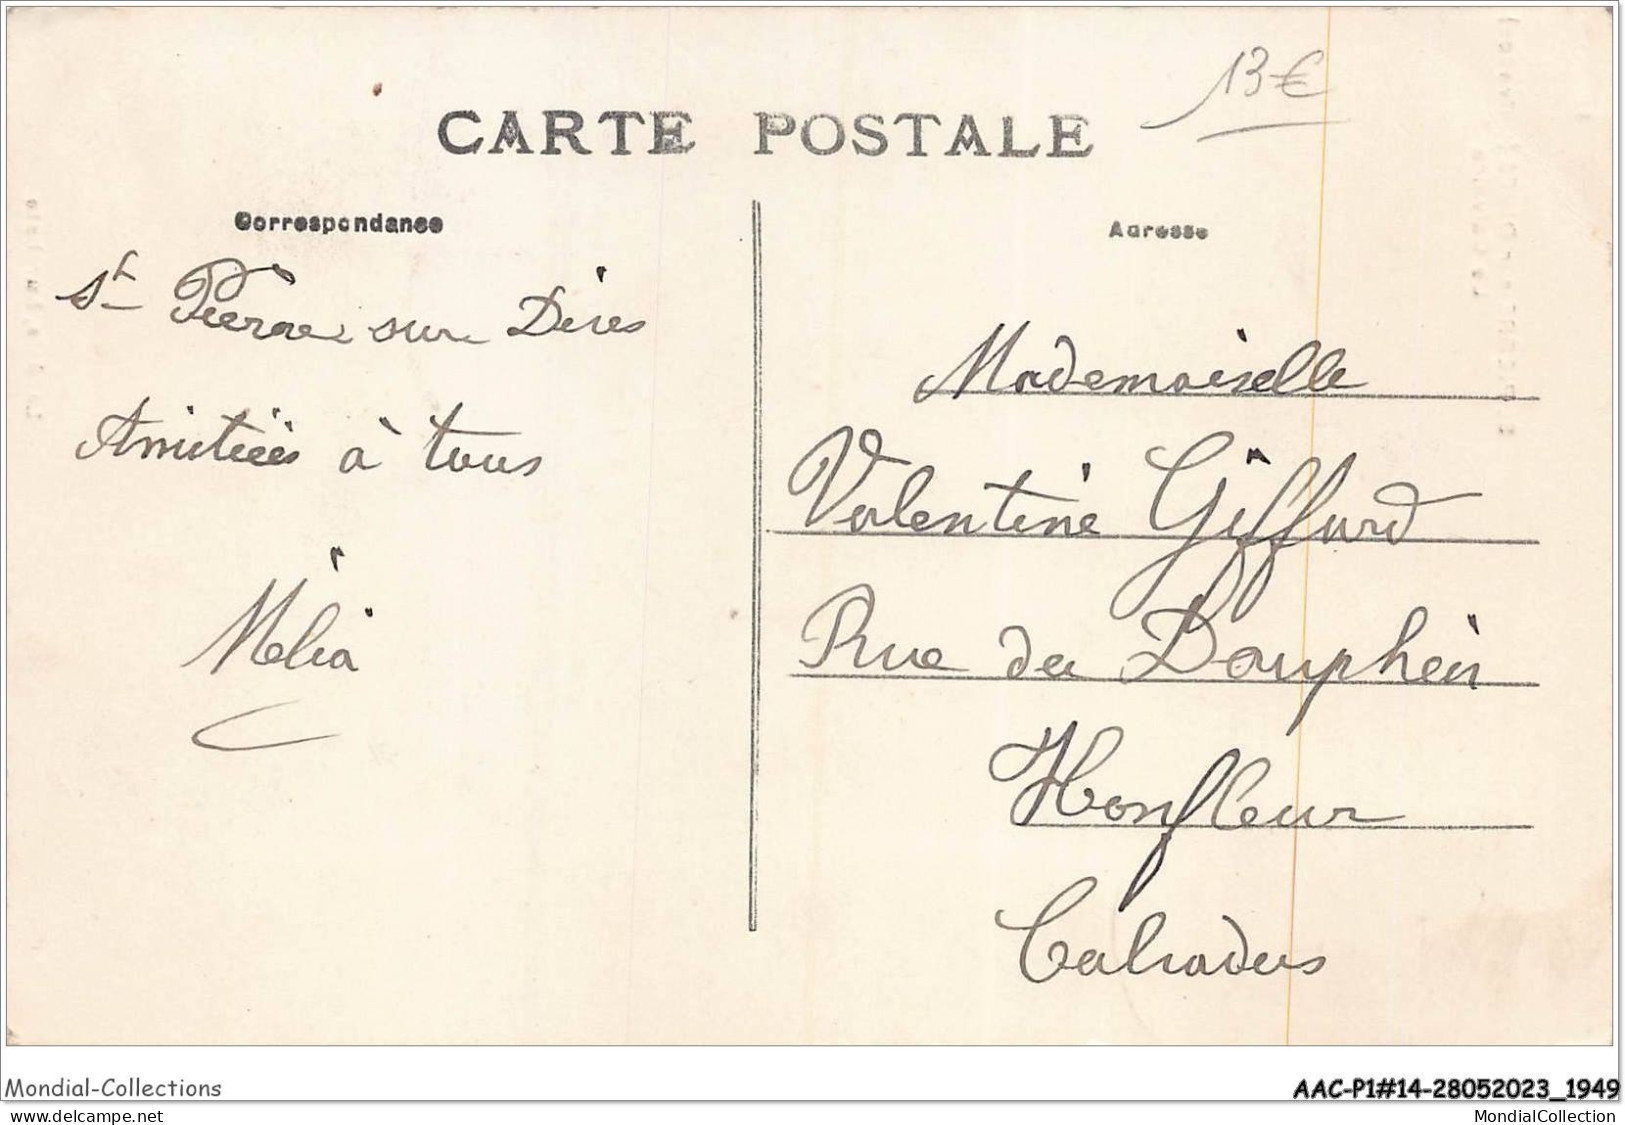 13€
CARTE POSTALE
Correspondance
Adresse
St Pierre sur Dives
Amitiées à tous
Mélia
Mademoiselle
Valentine Giffard
Rue du Dauphin
Honfleur
Calvados
Mondial-Collections
AAC-P1#14-28052023_1949
www.delcampe.net
MondialCollection